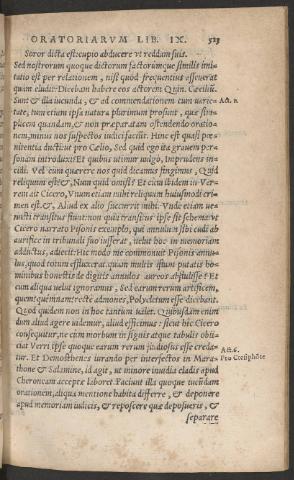 ORATORIARVM LIB. IX. 323
Soror dicta est: cupio abducere vt reddam suis.
Sed nostrorum quoque dictorum factorúmque similis imi-
tatio est per relationem, nisi quòd frequentius asseuerat
quàm eludit: Dicebam habere eos actorem Quin. Cæcilium.
Sunt & illa iucunda, & ad commendationem cum varieta- Act. 1.
tate, tum etiam ipsa natura plurimum prosunt, quæ sim-
plicem quandam, & non præparatam ostendendo oratio-
nem, minus nos suspectos iudici faciunt. Hinc est quasi pœ-
nitentia dicti: vt pro Cælio, Sed quid ego ita grauem per-
sonam introduxi? Et quibus vtimur vulgò, Imprudens in-
cidi. Vel cùm quærere nos quid dicamus fingimus, Quid
reliquum est? &, Nunquid omisi? Et cùm ibidem in Ver-
rem ait Cicero, Vnum etiam mihi reliquum huiusmodi cri-
men est. &, Aliud ex alio succurrit mihi. Vnde etiam ve-
nusti transitus fiunt: non quia transitus ipse sit schema: vt
Cicero narrato Pisonis exemplo, qui annulum sibi cudi ab
aurifice in tribunali suo iusserat, velut hoc in memoriam
adductus, adiecit: Hic modò me commonuit Pisonis annu-
lus, quod totum effluxerat. quàm multis istum putatis ho-
minibus honestis de digitis annulos aureos abstulisse? Et
cùm aliqua velut ignoramus, Sed earum rerum artificem,
quem? quinnam? rectè admones, Polycletum esse dicebant.
Quod quidem non in hoc tantùm valet. Quibusdam enim
dum aliud agere videmur, aliud efficimus: sicut hîc Cicero
consequitur, ne cùm morbum in signis atque tabulis obii-
ciat Verri ipse quoque earum rerum studiosus esse creda-
tur. Et Demosthenes iurando per interfectos in Mara- Act. 6.
thone & Salamine, id agit, vt minore inuidia cladis apud Pro Ctesiphôte
Cheroneam acceptæ laboret. Faciunt illa quoque iucūdam
orationem, aliqua mentione habita differre, & deponere
apud memoriam iudicis, & reposcere quæ deposueris, &
separare